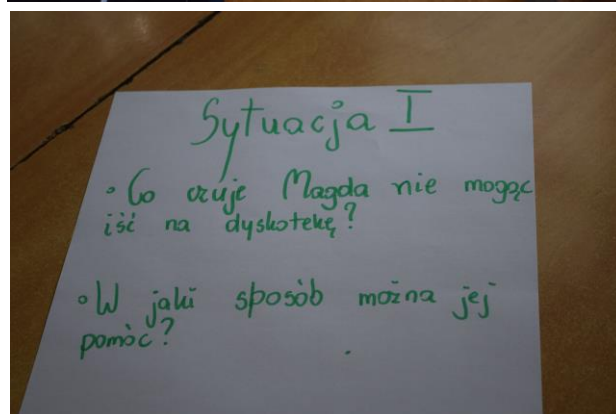 Sytuacja I
• Co czuje Magda nie mogąc
iść na dyskotekę?
• W jaki sposób można jej
pomóc?